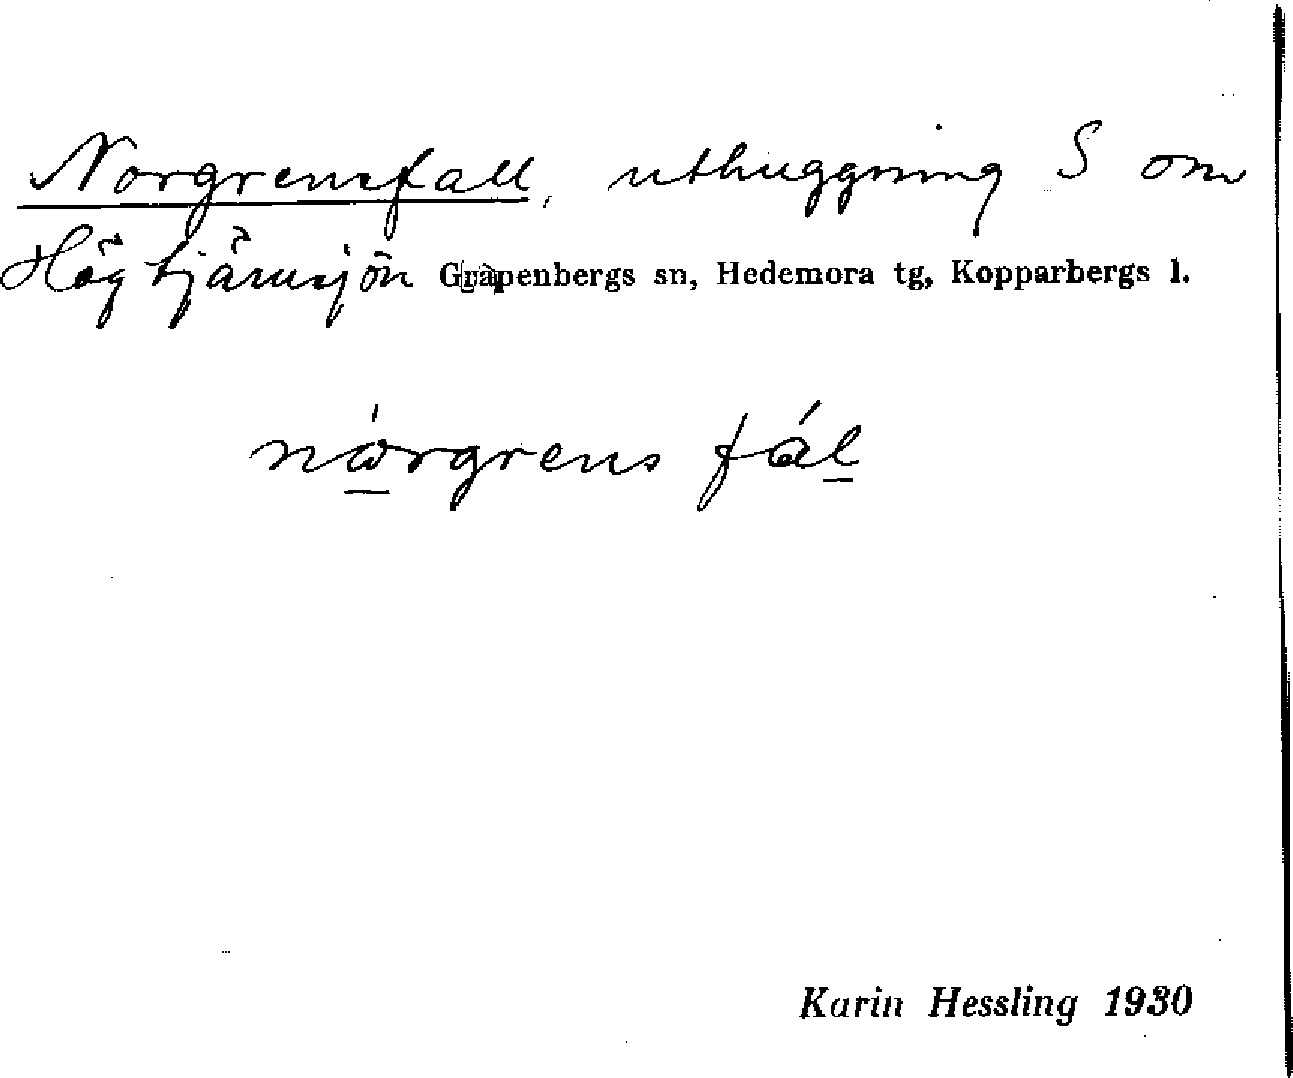 Norgrensfall, uthuggning S om
Högtjärnsjön Grapenbergs sn, Hedemora tg, Kopparbergs l.
nórgrens fál
Karin Hessling 1930